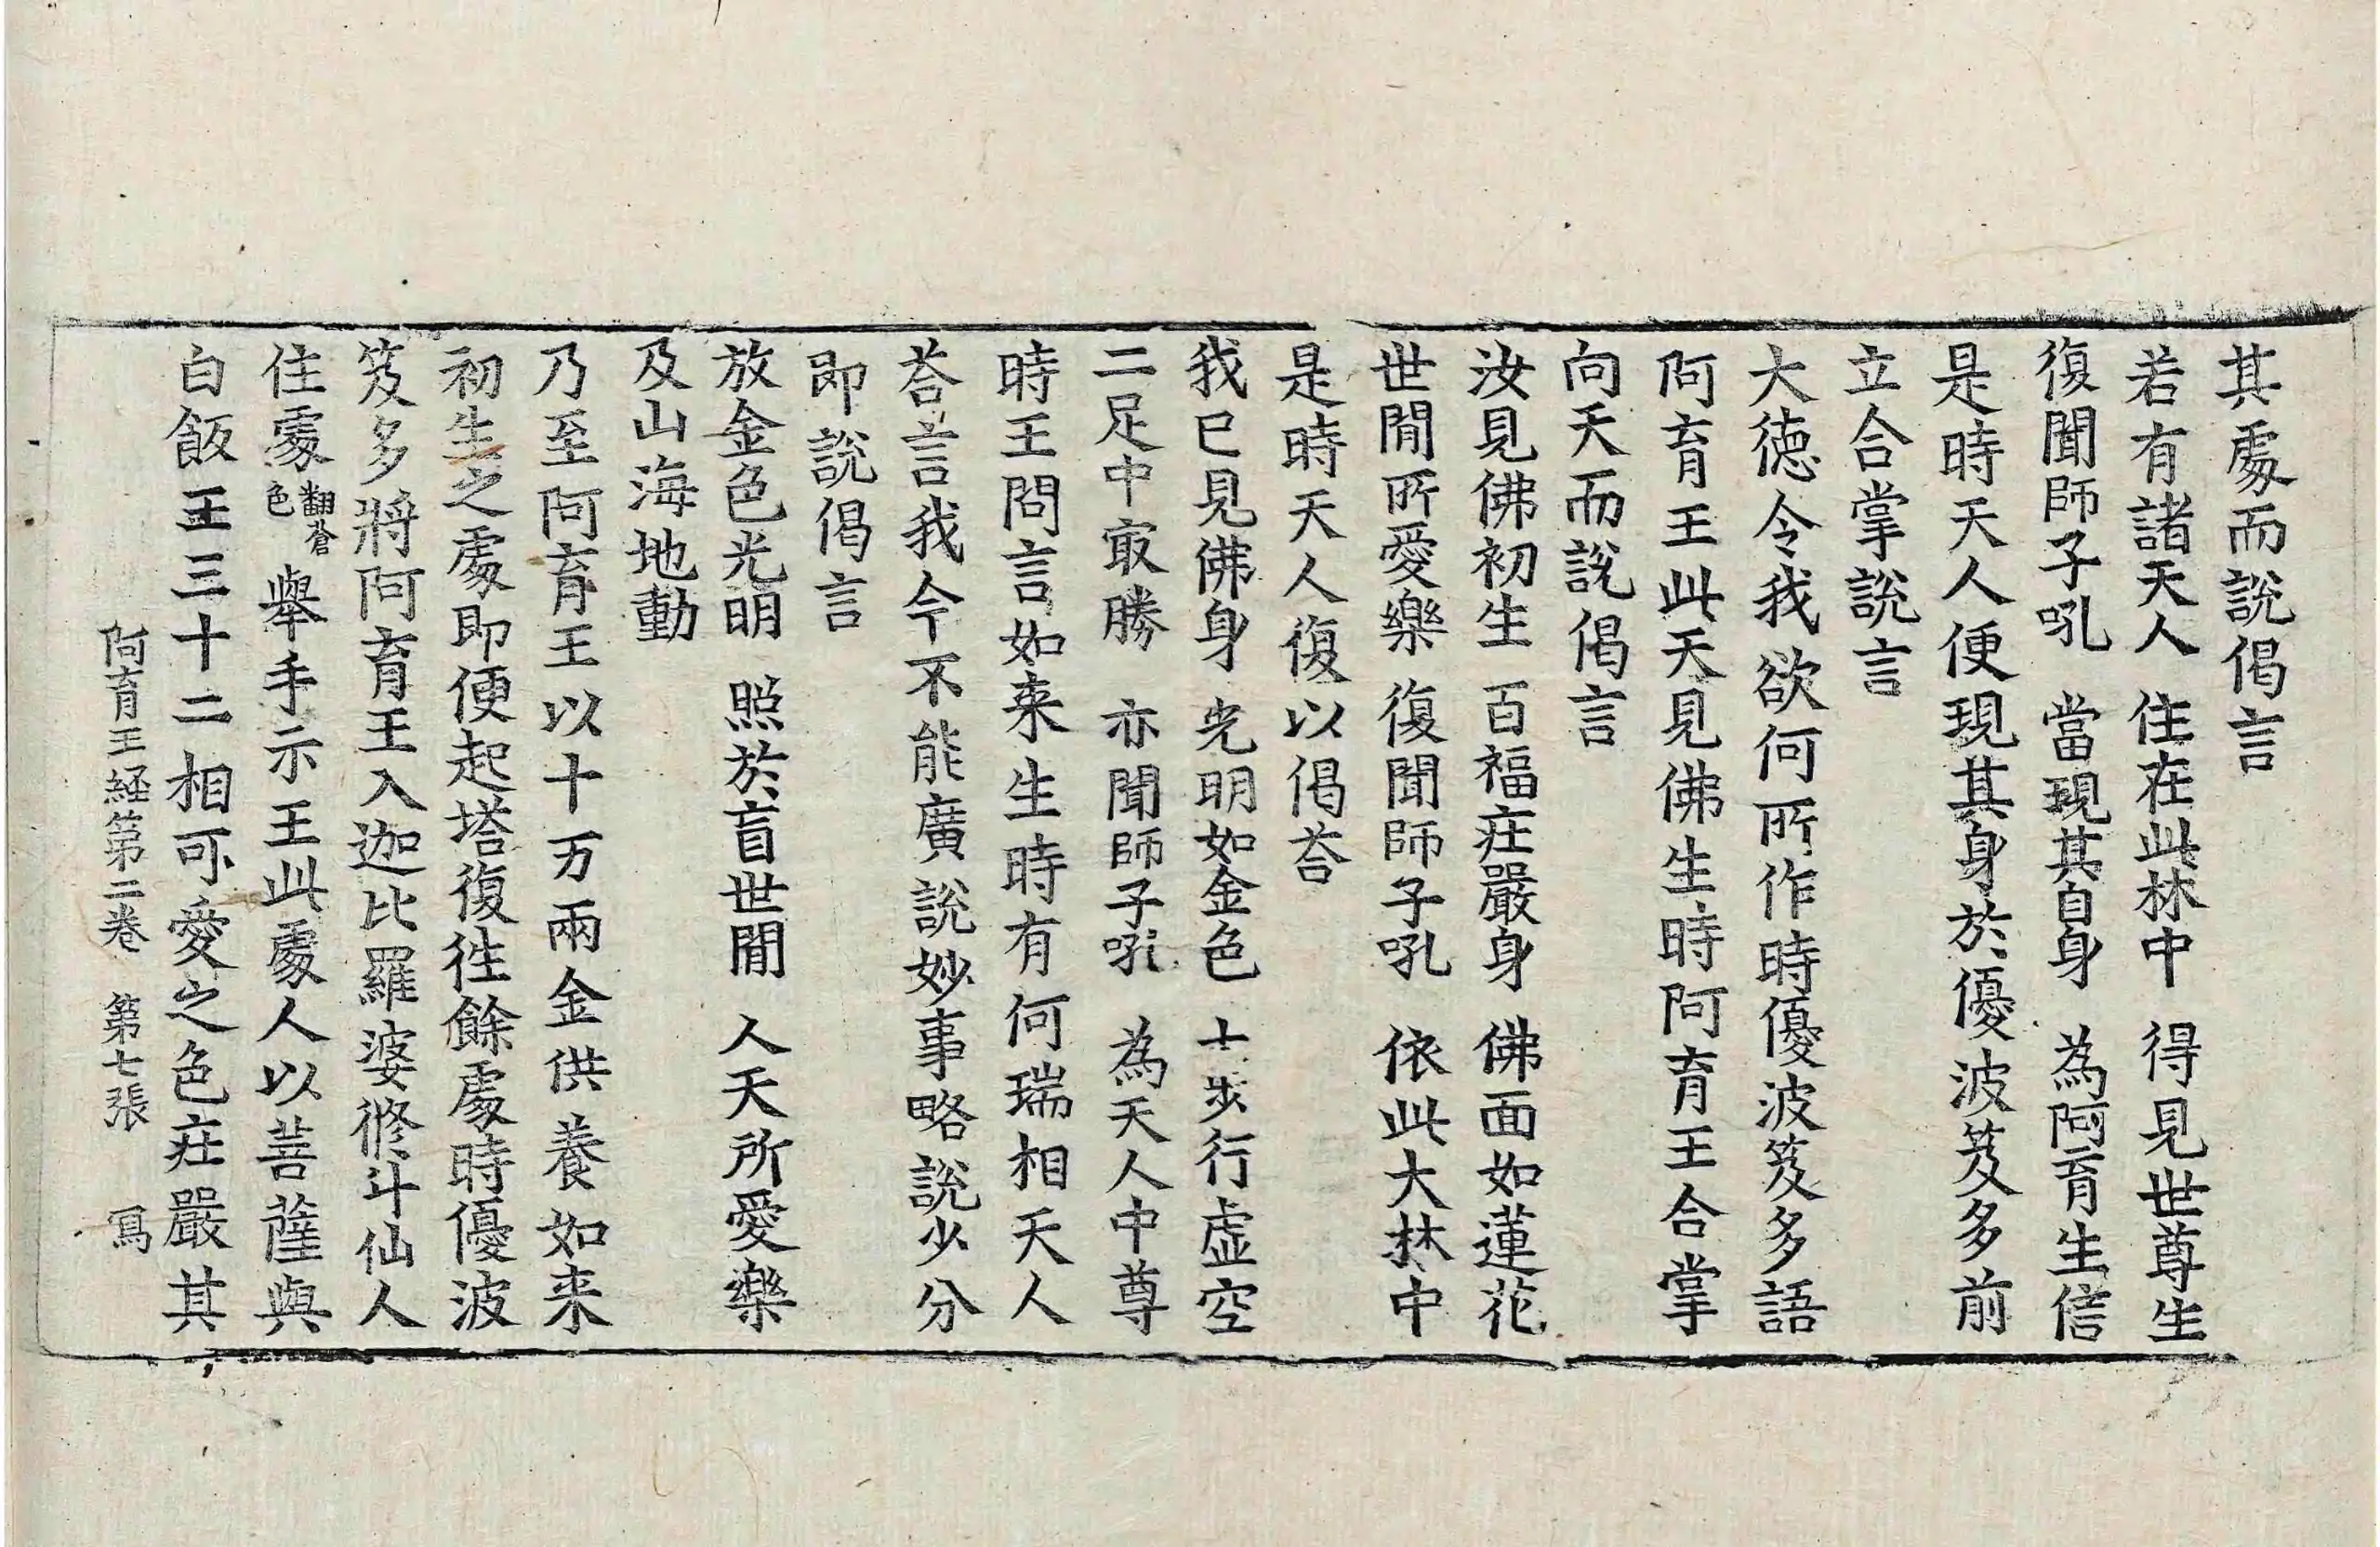 其處而說偈言
若有諸天人　住在此林中　得見世尊生
復聞師子吼　當現其自身　為阿育生信
是時天人便現其身於優波笈多前
立合掌說言
大德令我欲何所作時優波笈多語
阿育王此天見佛生時阿育王合掌
向天而說偈言
汝見佛初生　百福莊嚴身　佛面如蓮花
世間所愛樂　復聞師子吼　依此大林中
是時天人復以偈荅
我已見佛身　光明如金色　七步行虛空
二足中冣勝　亦聞師子吼　為天人中尊
時王問言如来生時有何瑞相天人
荅言我今不能廣說妙事略說少分
即說偈言
放金色光明　照於盲世間　人天所愛樂
及山海地動
乃至阿育王以十万兩金供養如来
初生之處即便起塔復徃餘處時優波
笈多將阿育王入迦比羅婆修斗仙人
住處翻蒼色舉手示王此處人以菩薩與
白飯王三十二相可愛之色莊嚴其
阿育王経第二卷　第七張　寫